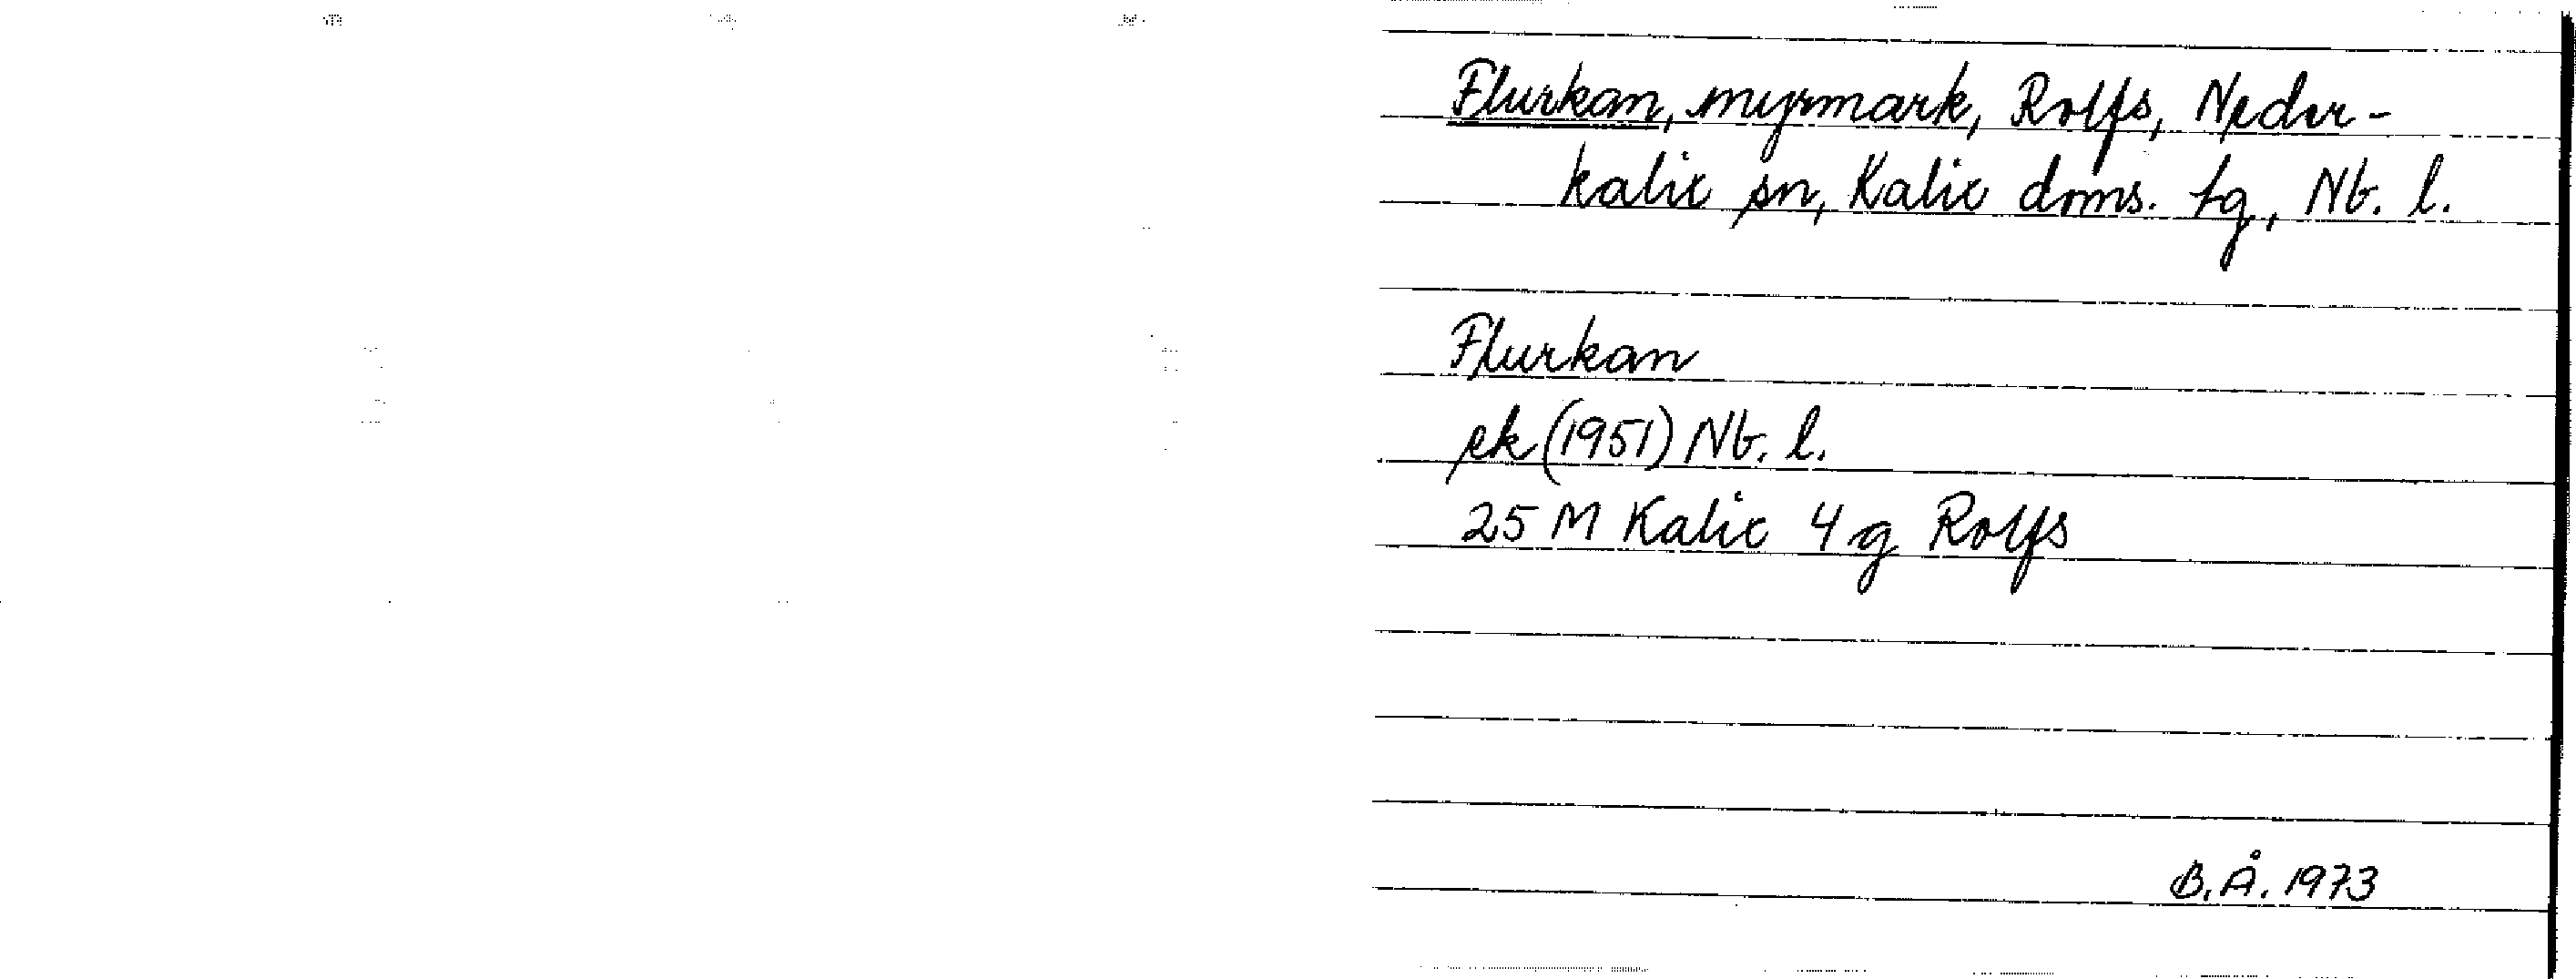 Flurkan, myrmark, Rolfs, Neder-
kalix sn, Kalix doms. tg, Nb. l.
Flurkan
ek (1951) Nb. l.
25 M Kalix 4 g Rolfs
B.Å. 1973